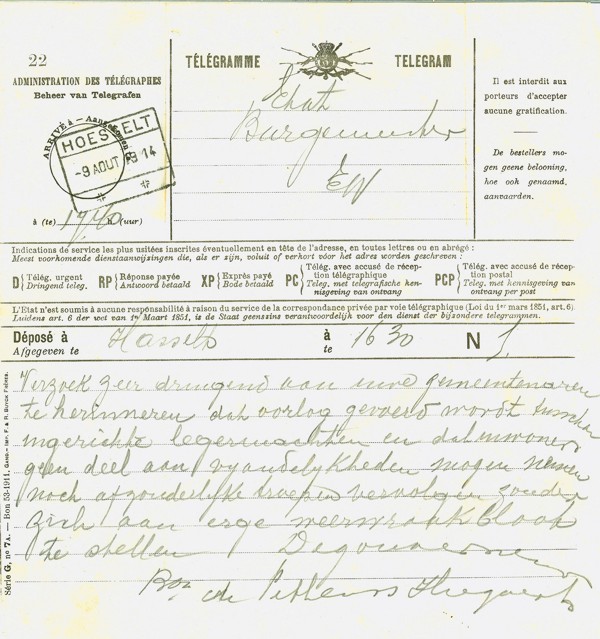 22
ADMINISTRATION DES TÉLÉGRAPHES
Beheer van Telegrafen
ARRIVÉ à – Aangekomen te
HOESSELT
-9 AOUT 1914
à (te) 17/40 h (uur)
TÉLÉGRAMME TELEGRAM
Etat
Burgemeester
EW
Il est interdit aux
porteurs d'accepter
aucune gratification.
De bestellers mo-
gen geene belooning,
hoe ook genaamd,
aanvaarden.
Indications de service les plus usitées inscrites éventuellement en tête de l'adresse, en toutes lettres ou en abrégé :
Meest voorkomende dienstaanwijzingen die, als er zijn, voluit of verkort vóór het adres worden geschreven :
D Télég. urgent RP Réponse payée XP Exprès payé PC Télég. avec accusé de récep- PCP Télég. avec accusé de récep-
tion télégraphique tion postal
Dringend teleg. Antwoord betaald Bode betaald Teleg. met telegrafische ken- Teleg. met kennisgeving van
nisgeving van ontvangst ontvangst per post
L'Etat n'est soumis à aucune responsabilité à raison du service de la correspondance privée par voie télégraphique (Loi du 1er mars 1851, art. 6).
Luidens art. 6 der wet van 1n Maart 1851, is de Staat geenszins verantwoordelijk voor den dienst der bijzondere telegrammen.
Déposé à Hasselt à 1630 N
Afgegeven te te
Verzoek zeer dringend aan uwe gemeentenaren
te herinneren dat oorlog gevoerd wordt tusschen
ingerichte legermachten en dat inwoners
geen deel aan vyandelykheden mogen nemen
noch afzonderlyke troepen vervolgen zonder
zich aan erge weerwraak bloot
te stellen De gouverneur
Bon de Pitteurs Hiegaerts
Série G, no 7A. — Bon 53-1911. Gand.- Imp. F. & R. Buyck Frères.